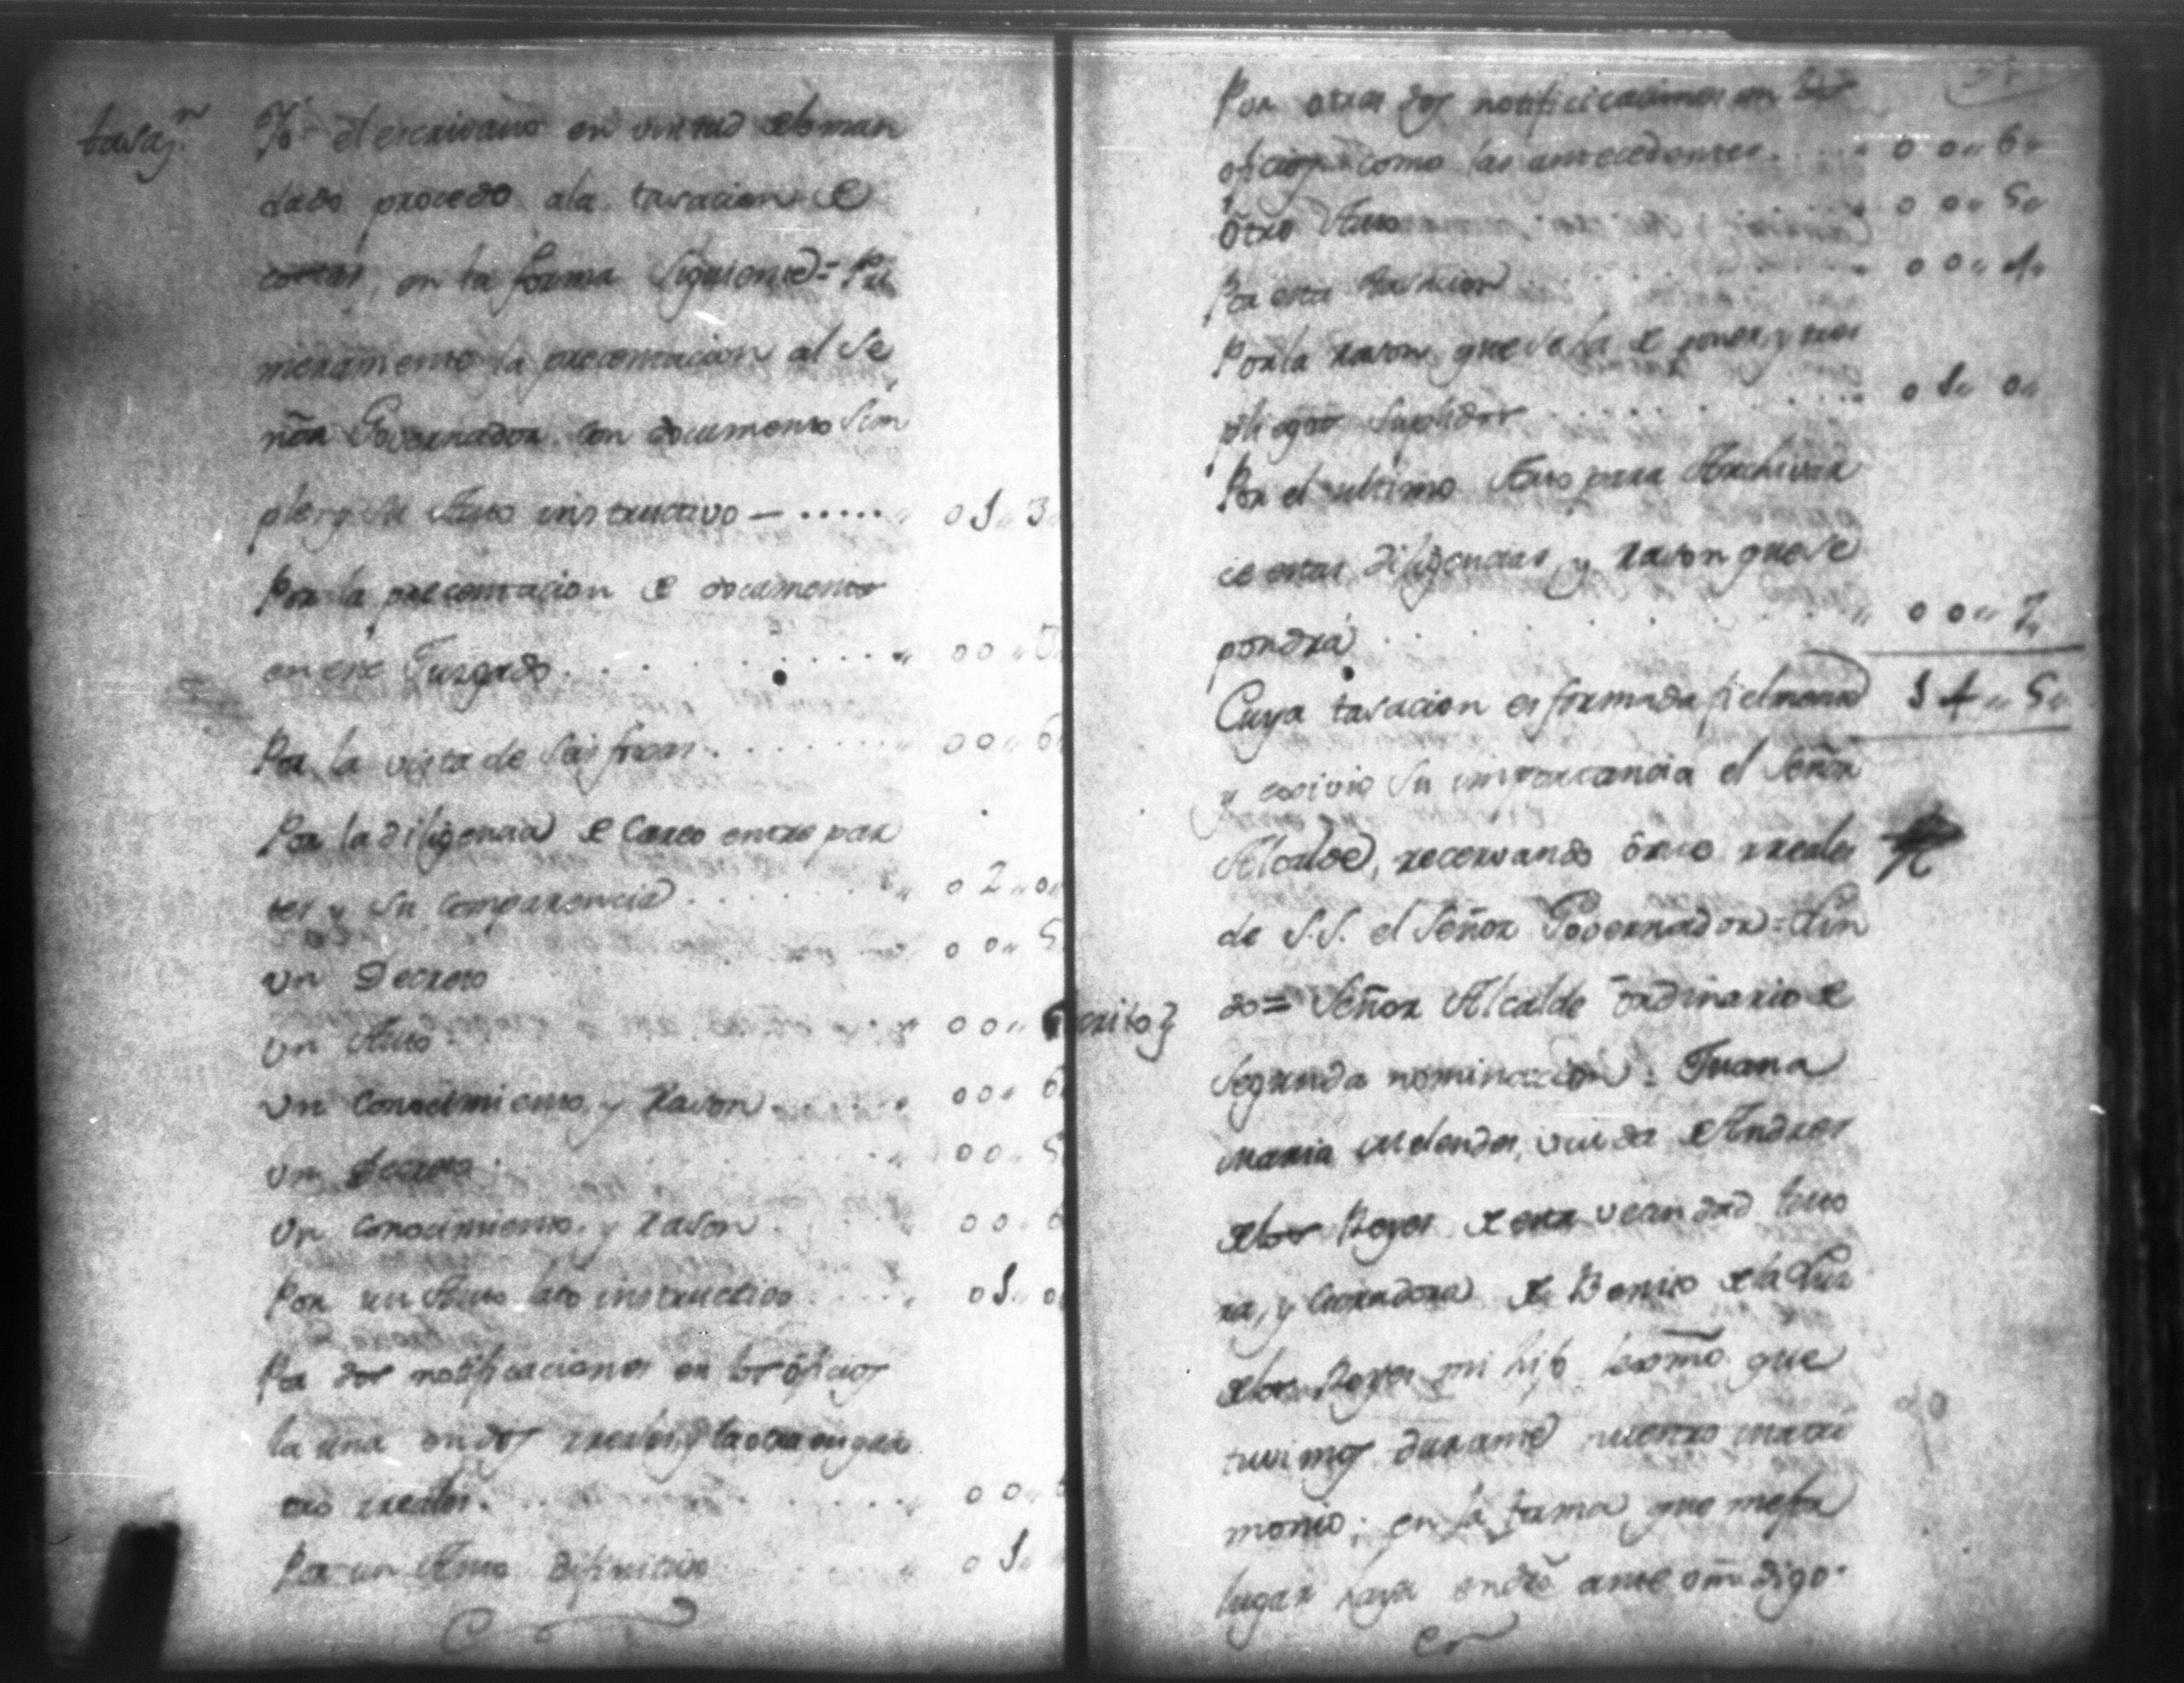 tasaz.n
Yo el escrivano en virtud delo man
dado procedo ala tasacion de
costas, en la forma siguiente = Pri
meramente la precentacion al Se
ñor Governador con documento sim
ple y su Auto instructivo — ..... " 0 1 " 3 "
Por la precentacion de documento
en este Jusgado . . . . . . . . " 0 0 "
Por la vista de seis foxas . . . . . . " 0 0 " 6
Por la diligencia de Careo entre par
tes y su comparencia . . . . . . " 0 2 " 0 "
un Decreto " 0 0 " 5
un Auto " 0 0 "
un Conocimiento, y rason . . . . " 0 0 " 6
un Decreto . . . . " 0 0 " 5
un conocimiento, y rason . . . . " 0 0 " 6
Por un Auto lato instructivo . . . . " 0 1 " 0
Por dos notificaciones en los oficios
la una en dos rreales, y la otra en qua
tro rreales . . . . . . . . " 0 0 "
Por un Auto difinitivo . . . . " 0 1 "
Por otras dos notificicaciones en los
oficios como las antecedentes . . . . " 0 0 " 6 "
Otro Auto " 0 0 " 5 "
Por esta tasacion . . . . . . " 0 0 " 4 "
Por la rason que se ha de poner, y tres
pliegos suplidos . . . . . . . . " 0 1 " 0 "
Por el ultimo Auto para Archivar
ce estas diligencias, y rason que se
pondrá . . . . . . . . " 0 0 " 7 "
Cuya tasacion es formada fielmente 1 4 " 5 "
y su importancia el Señor
Alcalde, recervando ocho rreales
de S.S. el Señor Governador = Lin
do = Señor Alcalde ordinario de
Segunda nominacion = Juana
Maria Melendes, viuda de Andres
delos Reyes de esta vecindad tuto
ra, y Curadora de Benito dela Luz
delos Reyes mi hijo lexmo. que
tuvimos durante nuestro matri
monio; en la forma que mejor
lugar haya en dro. ante vm. digo: